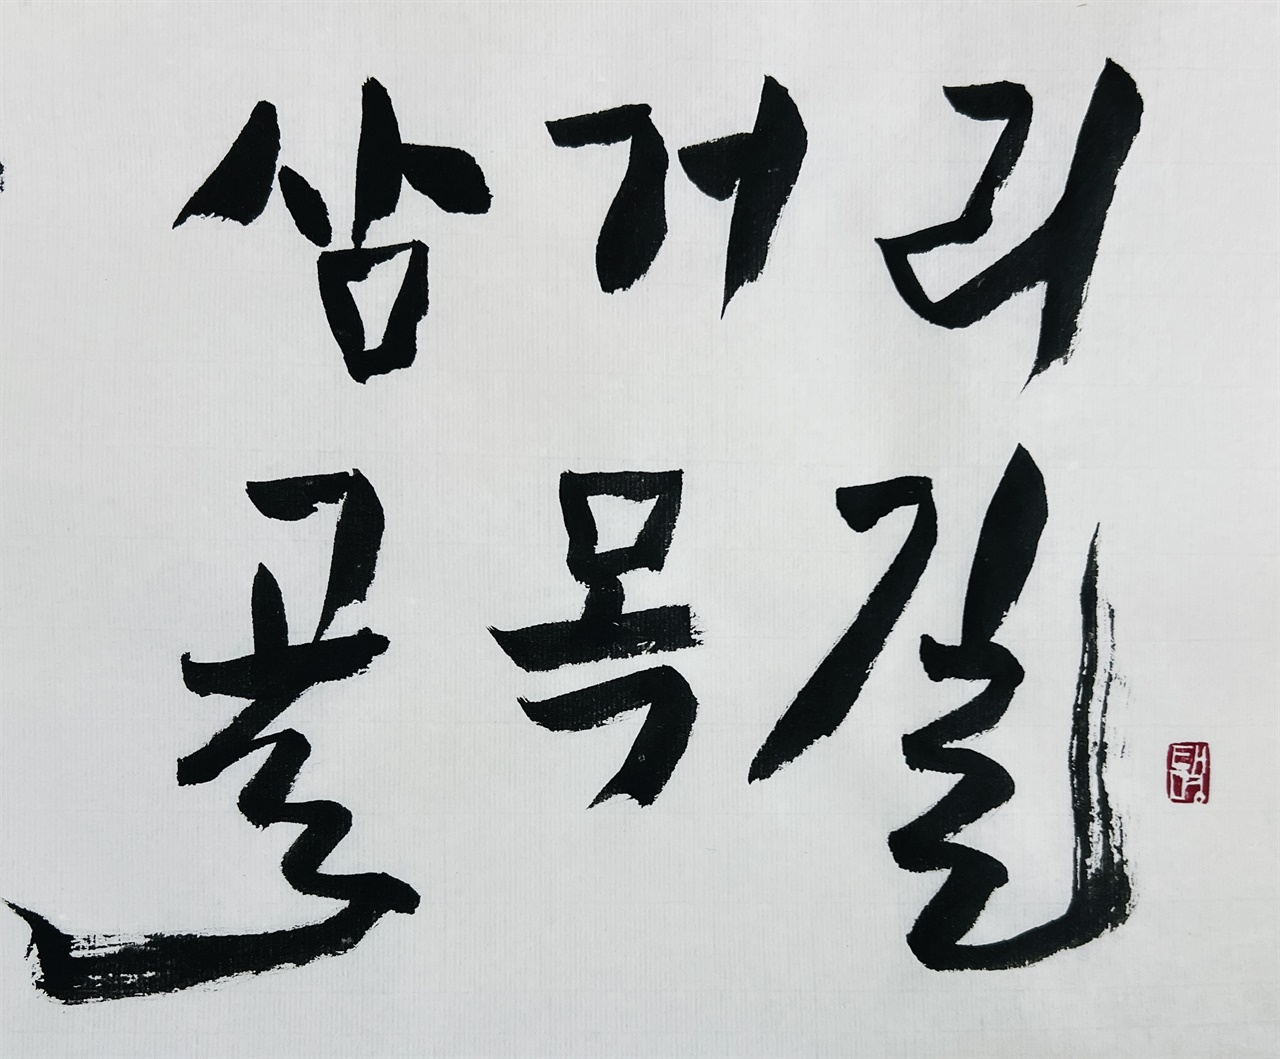 삼거리
골목길